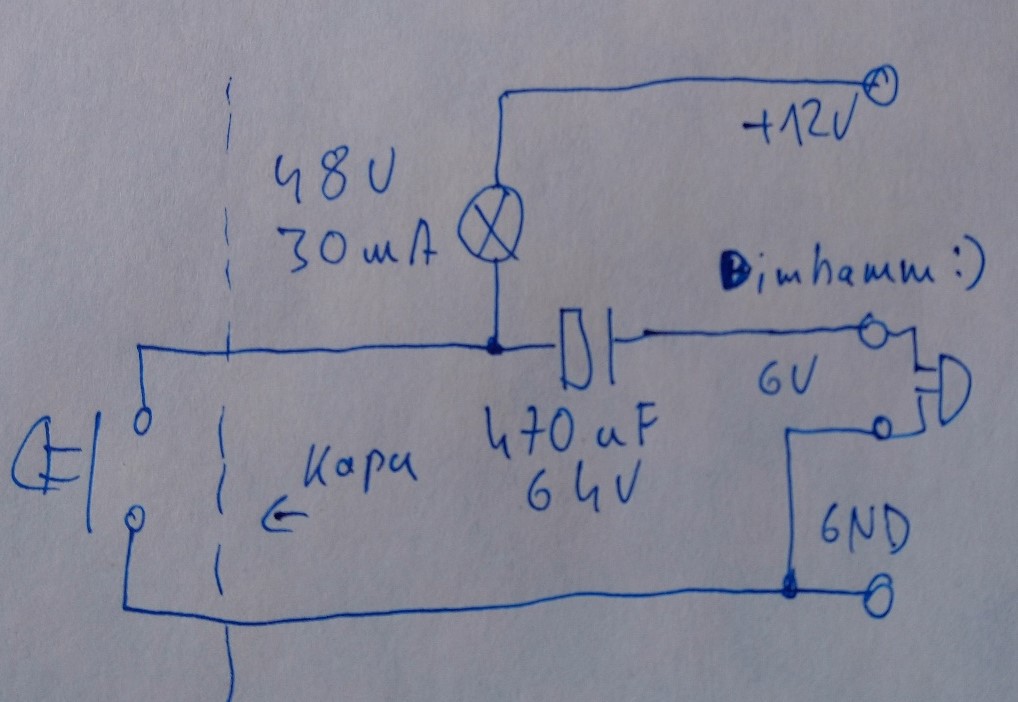 +12V
48V
30mA
Dimhamm :)
6V
470uF
64V
Kapu
←
GND